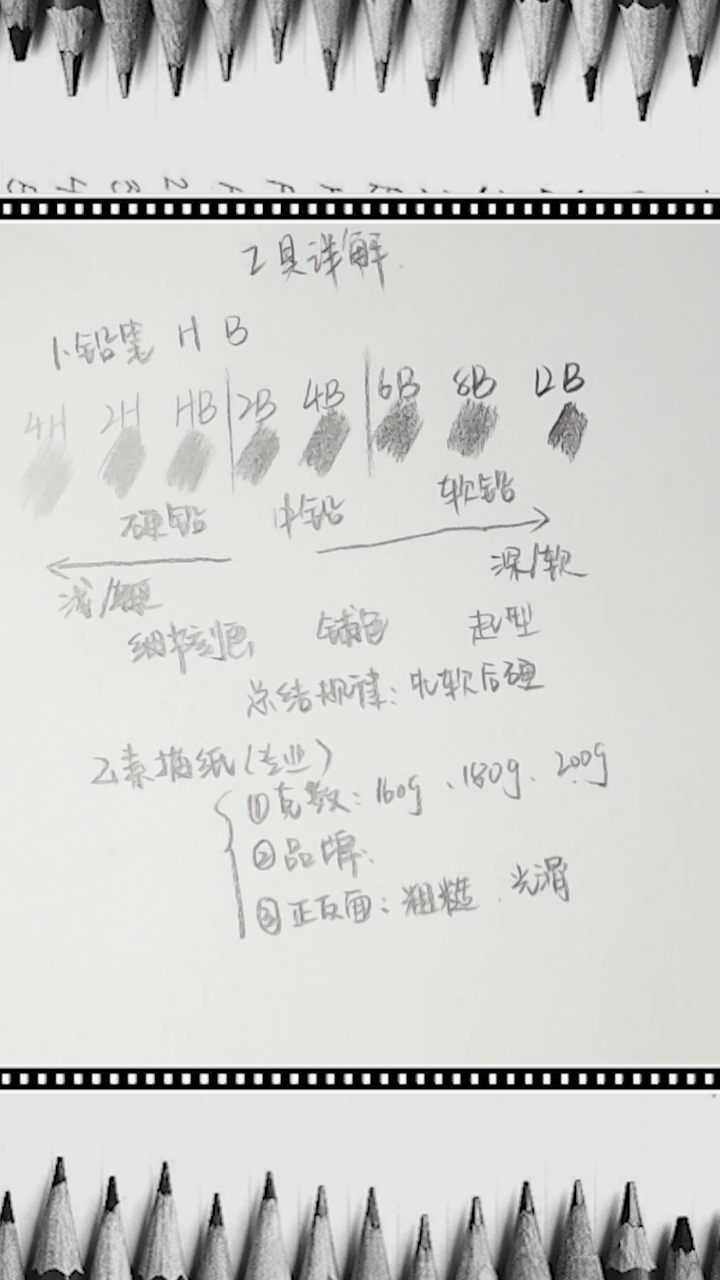 工具详解
1.铅笔 H B
4H 2H HB 2B 4B 6B 8B 12B
硬铅 中铅 软铅
浅/硬 深/软
细节刻画 铺色 起型
总结规律:先软后硬
2.素描纸(专业)
①克数:160g、180g、200g
②品牌:
③正反面:粗糙、光滑